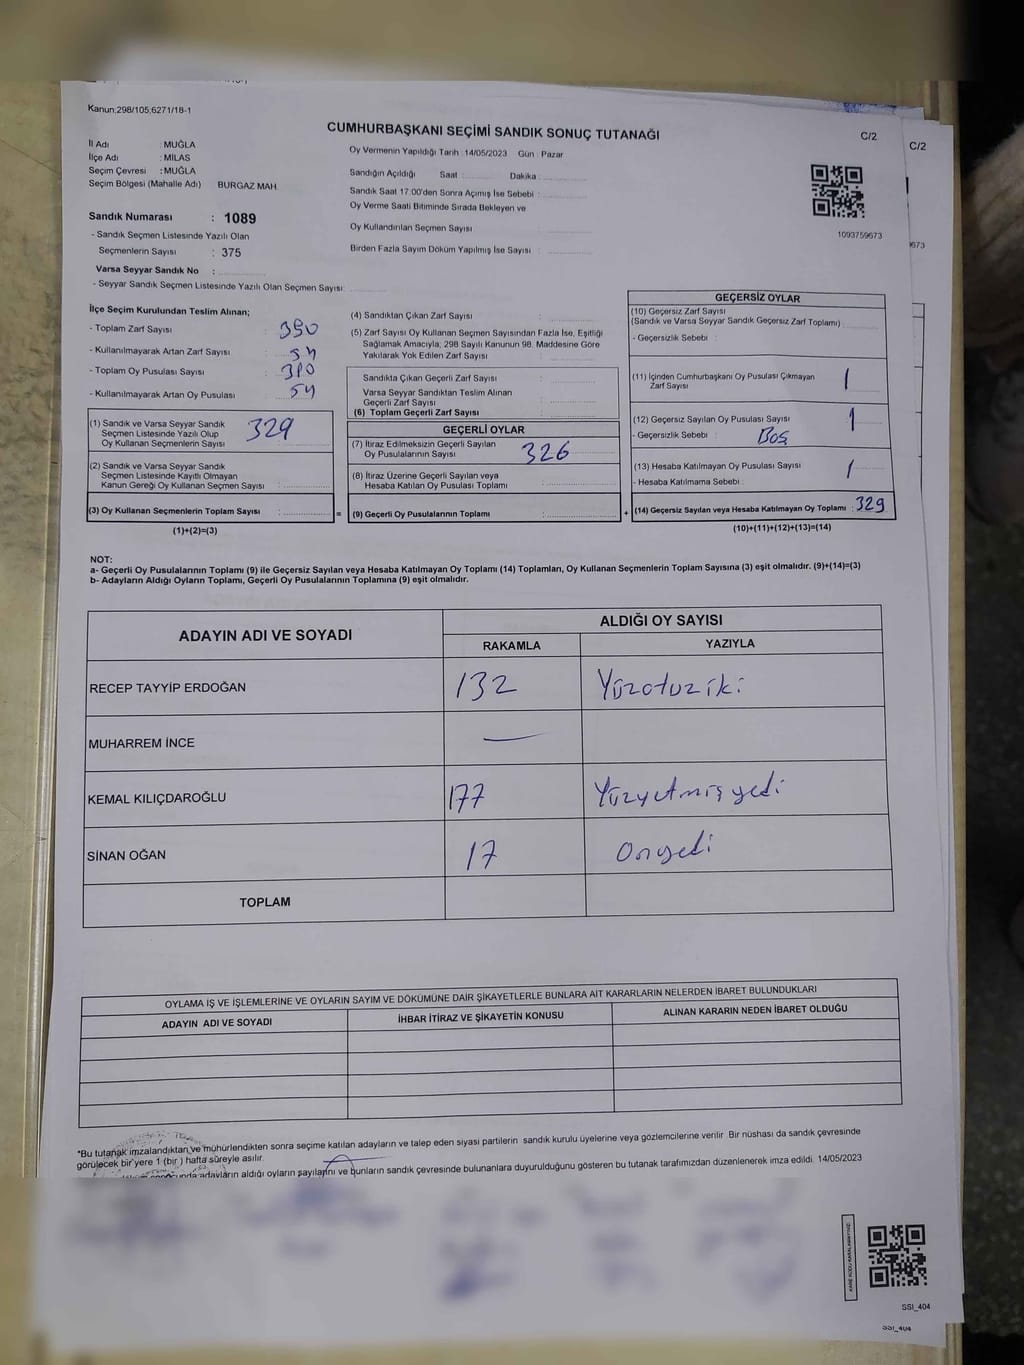 Kanun;298/105,6271/18-1
CUMHURBAŞKANI SEÇİMİ SANDIK SONUÇ TUTANAĞI
C/2
C/2
Oy Vermenin Yapıldığı Tarih :14/05/2023 Gün : Pazar
İl Adı : MUĞLA
İlçe Adı : MİLAS
Seçim Çevresi : MUĞLA
Seçim Bölgesi (Mahalle Adı) BURGAZ MAH.
Sandık Numarası : 1089
- Sandık Seçmen Listesinde Yazılı Olan
Seçmenlerin Sayısı : 375
Varsa Seyyar Sandık No :
- Seyyar Sandık Seçmen Listesinde Yazılı Olan Seçmen Sayısı:
Sandığın Açıldığı Saat : Dakika :
Sandık Saat 17:00'den Sonra Açımış İse Sebebi :
Oy Verme Saati Bitiminde Sırada Bekleyen ve
Oy Kullandırılan Seçmen Sayısı :
Birden Fazla Sayım Döküm Yapılmış İse Sayısı :
1093759673
673
İlçe Seçim Kurulundan Teslim Alınan;
- Toplam Zarf Sayısı :
- Kullanılmayarak Artan Zarf Sayısı : 54
- Toplam Oy Pusulası Sayısı :
- Kullanılmayarak Artan Oy Pusulası : 54
(1) Sandık ve Varsa Seyyar Sandık
Seçmen Listesinde Yazılı Olup
Oy Kullanan Seçmenlerin Sayısı 329
(2) Sandık ve Varsa Seyyar Sandık
Seçmen Listesinde Kayıtlı Olmayan
Kanun Gereği Oy Kullanan Seçmen Sayısı :
(3) Oy Kullanan Seçmenlerin Toplam Sayısı :
(1)+(2)=(3)
=
(4) Sandıktan Çıkan Zarf Sayısı :
(5) Zarf Sayısı Oy Kullanan Seçmen Sayısından Fazla İse, Eşitliği
Sağlamak Amacıyla; 298 Sayılı Kanunun 98. Maddesine Göre
Yakılarak Yok Edilen Zarf Sayısı :
Sandıkta Çıkan Geçerli Zarf Sayısı :
Varsa Seyyar Sandıktan Teslim Alınan
Geçerli Zarf Sayısı :
(6) Toplam Geçerli Zarf Sayısı :
GEÇERLİ OYLAR
(7) İtiraz Edilmeksizin Geçerli Sayılan
Oy Pusulalarının Sayısı : 326
(8) İtiraz Üzerine Geçerli Sayılan veya
Hesaba Katılan Oy Pusulası Toplamı :
(9) Geçerli Oy Pusulalarının Toplamı :
+
GEÇERSİZ OYLAR
(10) Geçersiz Zarf Sayısı
(Sandık ve Varsa Seyyar Sandık Geçersiz Zarf Toplamı) :
- Geçersizlik Sebebi :
(11) İçinden Cumhurbaşkanı Oy Pusulası Çıkmayan
Zarf Sayısı : 1
(12) Geçersiz Sayılan Oy Pusulası Sayısı : 1
- Geçersizlik Sebebi : Boş
(13) Hesaba Katılmayan Oy Pusulası Sayısı : 1
- Hesaba Katılmama Sebebi :
(14) Geçersiz Sayılan veya Hesaba Katılmayan Oy Toplamı : 329
(10)+(11)+(12)+(13)=(14)
NOT:
a- Geçerli Oy Pusulalarının Toplamı (9) ile Geçersiz Sayılan veya Hesaba Katılmayan Oy Toplamı (14) Toplamları, Oy Kullanan Seçmenlerin Toplam Sayısına (3) eşit olmalıdır. (9)+(14)=(3)
b- Adayların Aldığı Oyların Toplamı, Geçerli Oy Pusulalarının Toplamına (9) eşit olmalıdır.
ADAYIN ADI VE SOYADI
ALDIĞI OY SAYISI
RAKAMLA YAZIYLA
RECEP TAYYİP ERDOĞAN 132 Yüzotuziki
MUHARREM İNCE —
KEMAL KILIÇDAROĞLU 177 Yüzyetmişyedi
SİNAN OĞAN 17 Onyedi
TOPLAM
OYLAMA İŞ VE İŞLEMLERİNE VE OYLARIN SAYIM VE DÖKÜMÜNE DAİR ŞİKAYETLERLE BUNLARA AİT KARARLARIN NELERDEN İBARET BULUNDUKLARI
ADAYIN ADI VE SOYADI İHBAR İTİRAZ VE ŞİKAYETİN KONUSU ALINAN KARARIN NEDEN İBARET OLDUĞU
*Bu tutanak imzalandıktan ve mühürlendikten sonra seçime katılan adayların ve talep eden siyasi partilerin sandık kurulu üyelerine veya gözlemcilerine verilir. Bir nüshası da sandık çevresinde
görülecek bir yere 1 (bir ) hafta süreyle asılır.
adayların aldığı oyların paylarını ve bunların sandık çevresinde bulunanlara duyurulduğunu gösteren bu tutanak tarafımızdan düzenlenerek imza edildi. 14/05/2023
SSI_404
SSI_404